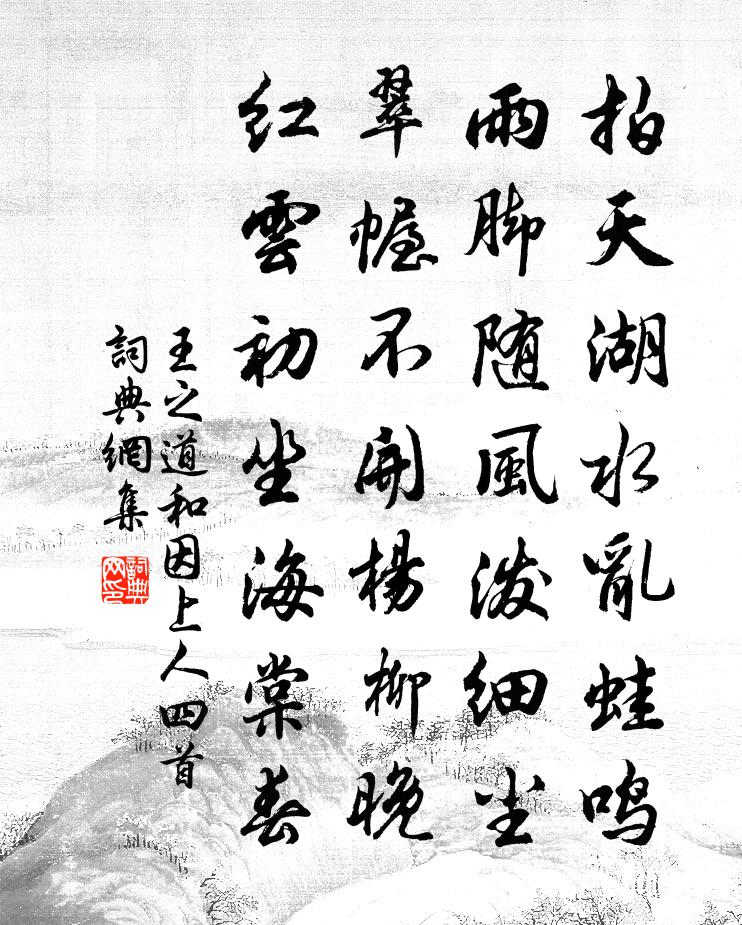 拍天湖水亂蛙鳴
雨脚随風泼細尘
翠幄不開楊柳晚
紅雲初坐海棠春
王之道和因上人四首
詞典網集
詞典网印